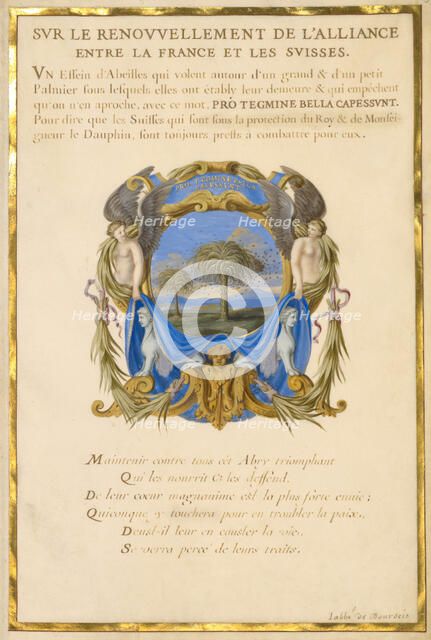 SVR LE RENOVVELLEMENT DE L'ALLIANCE
ENTRE LA FRANCE ET LES SVISSES.
VN Essein d'Abeilles qui volent autour d'un grand & d'un petit
Palmier sous lesquels elles ont étably leur demeure & qui empêchent
qu'on n'en aproche, avec ce mot, PRÔ TEGMINE BELLA CAPESSVNT.
Pour dire que les Suisses qui sont sous la protection du Roy & de Monsei-
gneur le Dauphin, sont toujours prests à combattre pour eux.
PRO TEGMINE BELLA
CAPESSVNT
Heritage Heritage
Heritage Heritage
Maintenir contre tous cét Abry triomphant
Qui les nourrit & les deffend.
De leur coeur magnanime est la plus forte envie;
Quiconque y touchera pour en troubler la paix,
Deust-il leur en couster la vie,
Se verra percé de leurs traits.
Heritage Heritage
l'abbé de Bourdeis